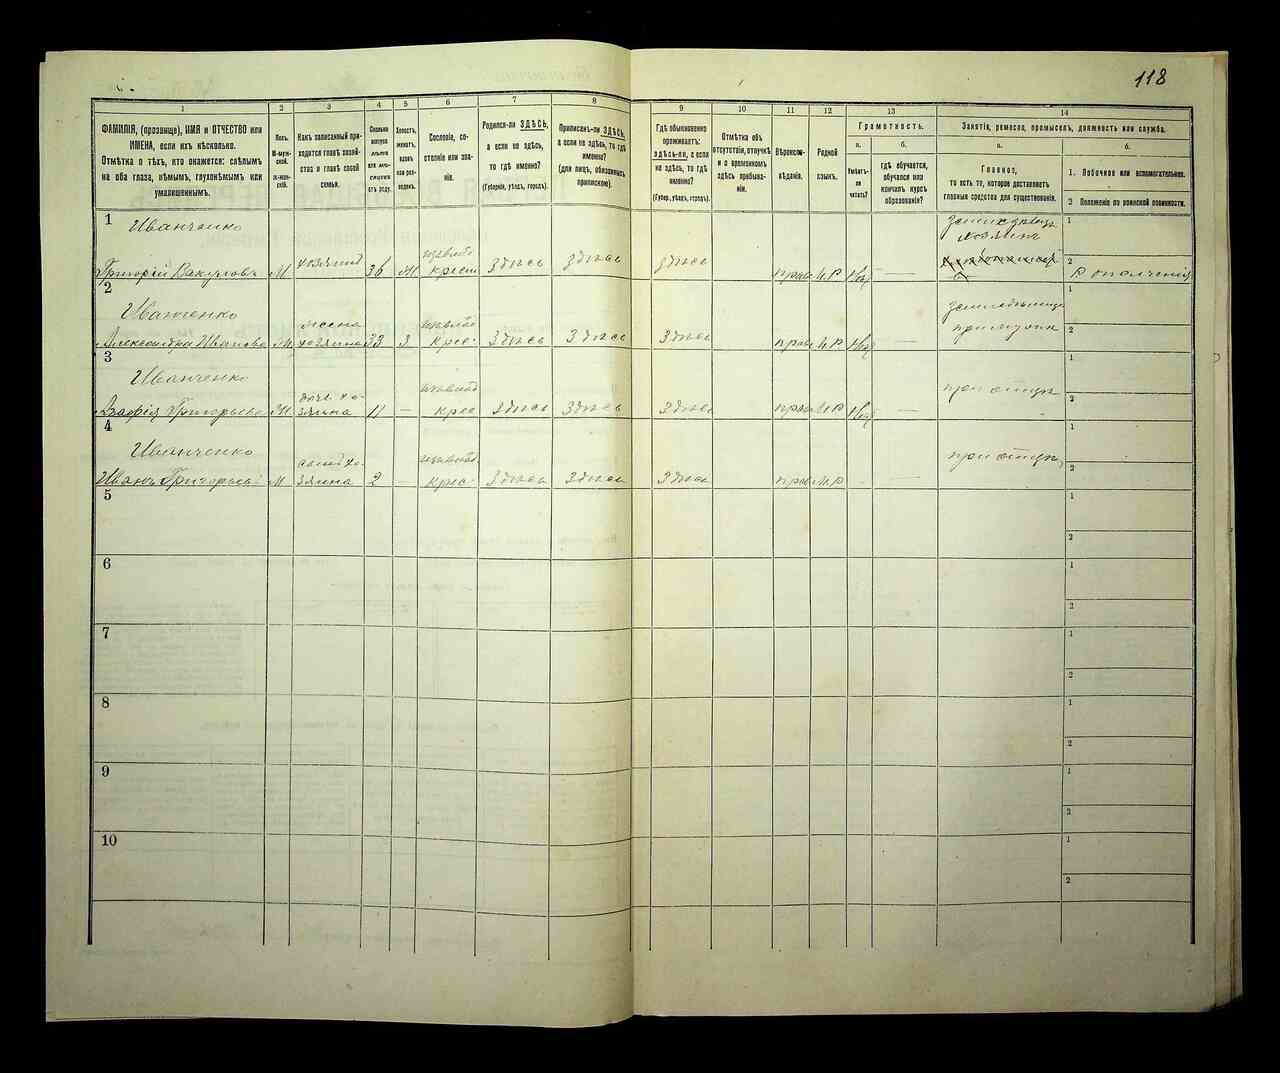 118
1 2 3 4 5 6 7 8 9 10 11 12 13 14
ФАМИЛІЯ, (прозвище), ИМЯ и ОТЧЕСТВО или
ИМЕНА, если ихъ нѣсколько.
Отмѣтка о тѣхъ, кто окажется: слѣпымъ
на оба глаза, нѣмымъ, глухонѣмымъ или
умалишеннымъ.
Полъ.
М-муж-
ской.
Ж-жен-
скій.
Какъ записанный при-
ходится главѣ хозяй-
ства и главѣ своей
семьи.
Сколько
минуло
лѣтъ
или мѣс-
яцевъ
отъ роду.
Холостъ,
женатъ,
вдовъ
или раз-
веденъ.
Сословіе, со-
стояніе или зва-
ніе.
Родился-ли ЗДѢСЬ,
а если не здѣсь,
то гдѣ именно?
(Губернія, уѣздъ, городъ).
Приписанъ-ли ЗДѢСЬ,
а если не здѣсь, то гдѣ
именно?
(для лицъ, обязанныхъ
припискою).
Гдѣ обыкновенно
проживаетъ:
здѣсь-ли, а если
не здѣсь, то гдѣ
именно?
(Губер., уѣздъ, городъ).
Отмѣтка объ
отсутствіи, отлучкѣ
и о временномъ
здѣсь пребыва-
ніи.
Вѣроиспо-
вѣданіе.
Родной
языкъ.
Грамотность.
а.
Умѣетъ-
ли
читать?
б.
гдѣ обучается,
обучался или
кончилъ курсъ
образованія?
Занятіе, ремесло, промыселъ, должность или служба.
а.
Главное,
то есть то, которое доставляетъ
главныя средства для существованія.
б.
1. Побочное или вспомогательное.
2 Положеніе по воинской повинности.
1 Иванченко
Григорій Вакуловъ М хозяинъ 36 Ж крест здѣсь здѣсь здѣсь прав М.Р нѣтъ —
хозяинъ
1
2 ополченія
2
Иванченко
Александра Иванова М жена хозяина 33 З крес. здѣсь здѣсь здѣсь прав М.Р нѣтъ —
при мужѣ
1
2
3
Иванченко
Агафія Григорьева Ж дочь хо-
зяина 11 — крес здѣсь здѣсь здѣсь прав М.Р нѣтъ —
при отцѣ
1
2
4
Иванченко
Иванъ Григорьевъ М сынъ хо-
зяина 2 — крес здѣсь здѣсь здѣсь прав М.Р
при отцѣ
1
2
5
1
2
6
1
2
7
1
2
8
1
2
9
1
2
10
1
2